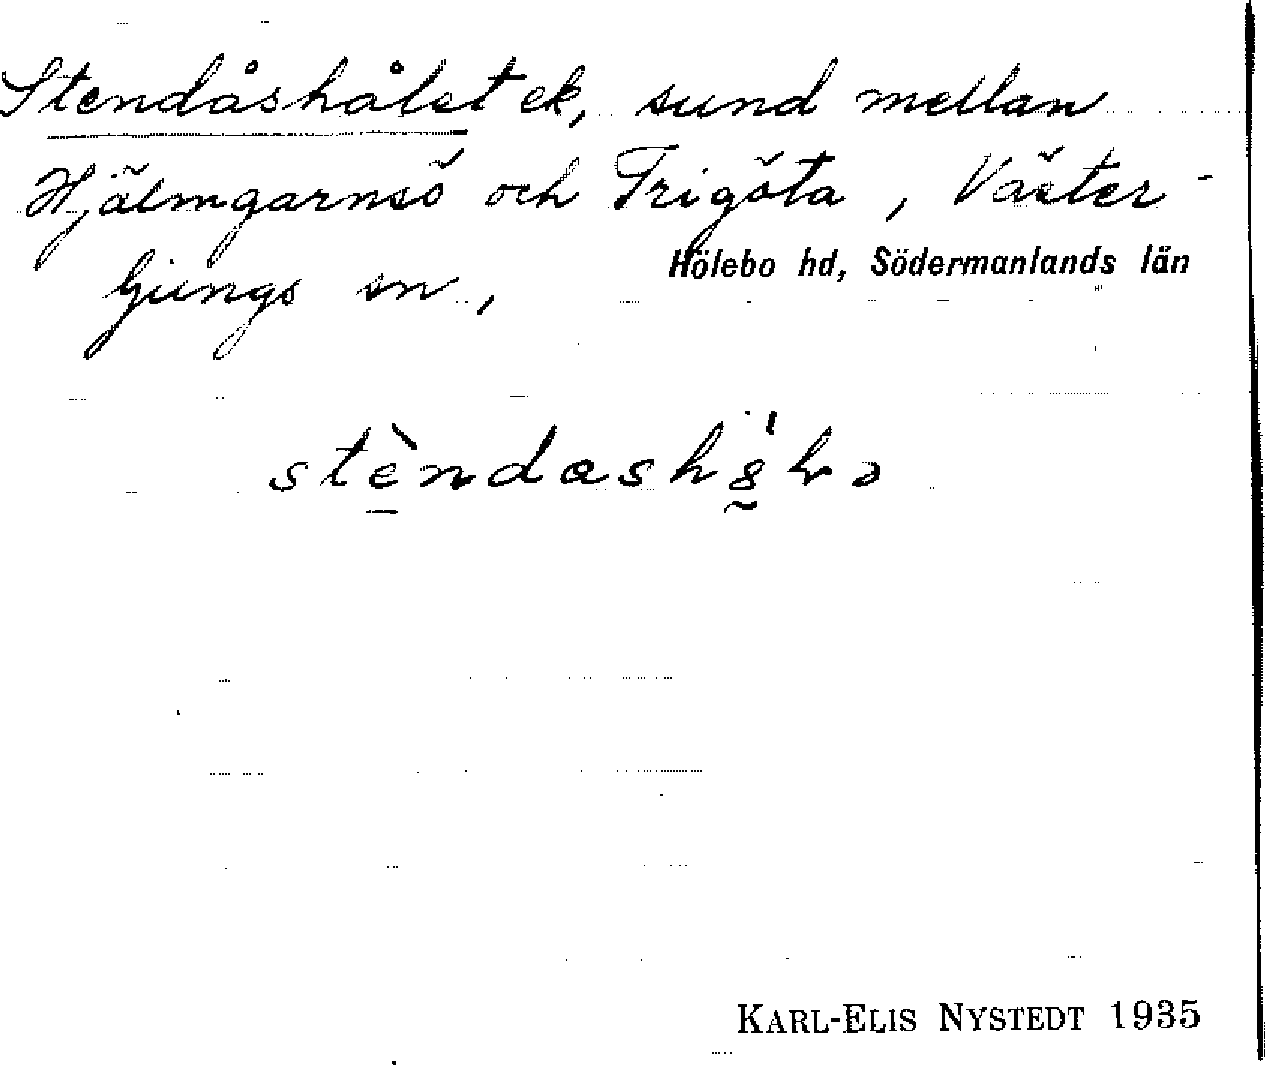 Stendåshålet ek, sund mellan
Hjälmgarnsö och Frigöta, Väster-
ljungs sn,
Hölebo hd, Södermanlands län
stèndash
KARL-ELIS NYSTEDT 1935